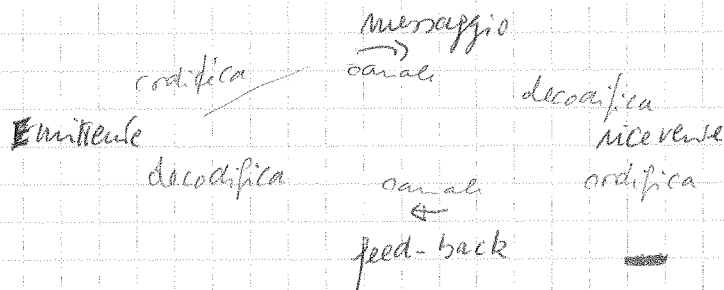 messaggio
codifica canale decodifica
Emittente ricevente
decodifica canale codifica
feed-back